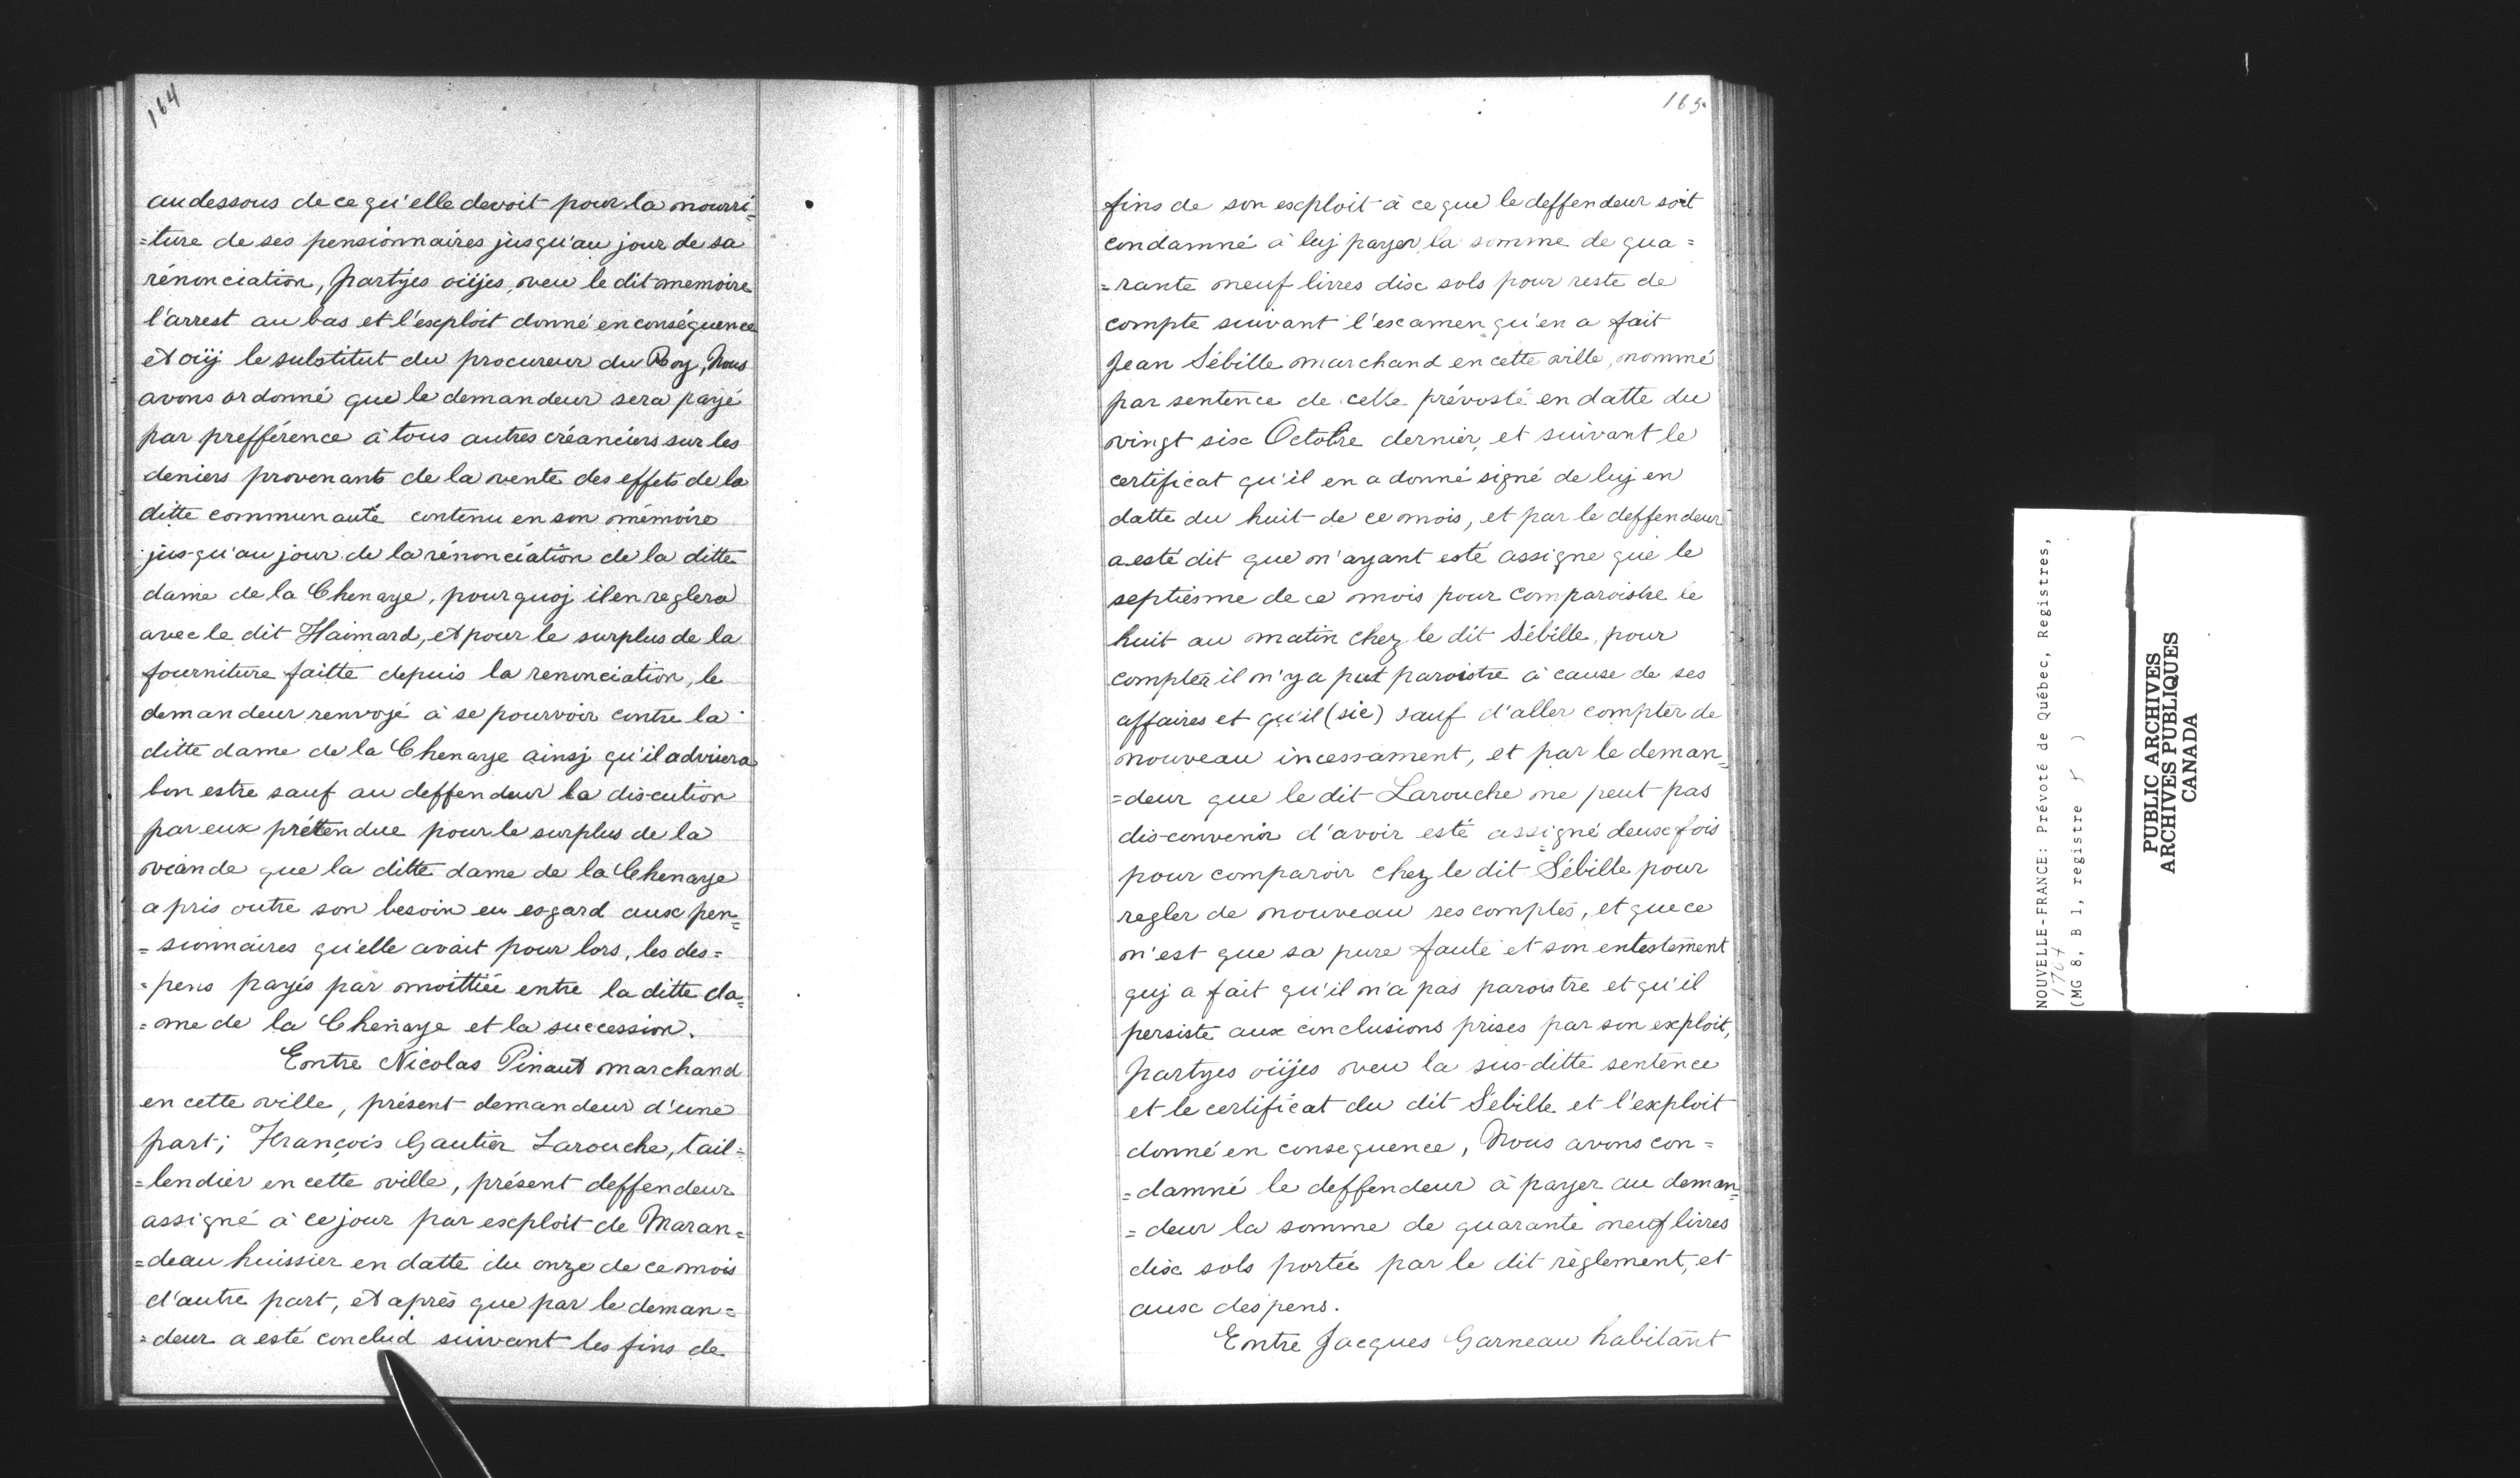 164
au dessous de ce qu'elle devoit pour la nourri=
=ture de ses pensionnaires jusqu'au jour de sa
rénonciation, partyes oüjes, veu le dit memoire
l'arrest au bas et l'exploit donné en conséquence
et oüj le substitut du procureur du Roy, Nous
avons ordonné que le demandeur sera payé
par prefférence à tous autres créanciers sur les
deniers provenants de la vente des effets de la
ditte communauté contenu en son mémoire
jus-qu'au jour de la rénonciation de la ditte
dame de la Chenaye, pourquoj il en reglera
avec le dit Haimard, et pour le surplus de la
fourniture faitte depuis la renonciation, le
demandeur renvoyé à se pourvoir contre la
ditte dame de la Chenaye ainsj qu'il advisera
bon estre sauf au deffendeur la dis-cution
par eux prétendue pour le surplus de la
viande que la ditte dame de la Chenaye
a pris outre son besoin eu esgard aux pen=
=sionnaires qu'elle avait pour lors, les des=
=pens payés par moittiée entre la ditte da=
=me de la Chenaye et la succession.
Entre Nicolas Pinaut marchand
en cette ville, présent demandeur d'une
part; François Gautier Larouche, tail=
=lendier en cette ville, présent deffendeur
assigné à ce jour par exploit de Maran=
=deau huissier en datte du onze de ce mois
d'autre part, et après que par le deman=
=deur a esté conclud suivant les fins de
165
fins de son exploit à ce que le deffendeur soit
condamné à luj payer la somme de qua=
=rante neuf livres dix sols pour reste de
compte suivant l'examen qu'en a fait
Jean Sébille marchand en cette ville, nommé
par sentence de cette prévosté en datte du
vingt six Octobre dernier, et suivant le
certificat qu'il en a donné signé de luj en
datte du huit de ce mois, et par le deffendeur
a esté dit que n'ayant esté assigne que le
septiesme de ce mois pour comparoistre le
huit au matin chez le dit Sébille, pour
compter il n'y a put paroistre à cause de ses
affaires et qu'il (sic) sauf d'aller compter de
nouveau incessament, et par le deman=
=deur que le dit Larouche ne peut pas
dis-convenir d'avoir esté assigné deux fois
pour comparoir chez le dit Sébille pour
regler de nouveau ses comptes, et que ce
n'est que sa pure faute et son entestement
quj a fait qu'il n'a pas paroistre et qu'il
persiste aux conclusions prises par son exploit,
partyes oüjes veu la sus-ditte sentence
et le certificat du dit Sebille et l'exploit
donné en consequence, Nous avons con=
=damné le deffendeur à payer au deman=
=deur la somme de quarante neuf livres
dix sols portée par le dit règlement, et
aux despens.
Entre Jacques Garneau habitant
NOUVELLE-FRANCE: Prévoté de Québec, Registres,
(MG 8, B 1, registre )
PUBLIC ARCHIVES
ARCHIVES PUBLIQUES
CANADA